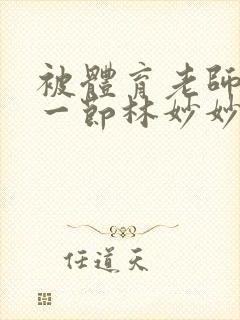 被體育老師
一節林妙妙
任道天